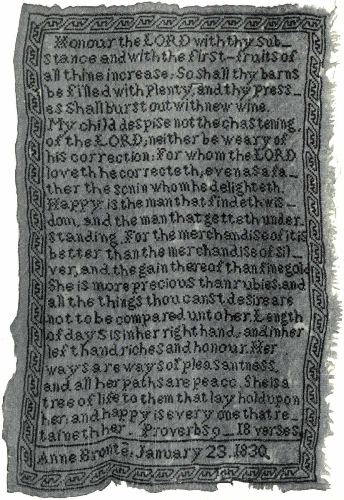 Honour the LORD with thy sub-
stance and with the first-fruits of
all thine increase: So shall thy barns
be filled with plenty, and thy press-
es shall burst out with new wine.
My child despise not the chastening
of the LORD; neither be weary of
his correction: For whom the LORD
loveth he correcteth, even as a fa-
ther the son in whom he delighteth.
Happy is the man that findeth wis-
dom, and the man that getteth under-
standing. For the merchandise of it is
better than the merchandise of sil-
ver, and the gain thereof than fine gold
She is more precious than rubies: and
all the things thou canst desire are
not to be compared unto her. Length
of days is in her right hand, and in her
left hand riches and honour. Her
ways are ways of pleasantness,
and all her paths are peace. She is a
tree of life to them that lay hold upon
her: and happy is every one that re-
taineth her Proverbs 9.. 18 verses.
Anne Bronte: January 23. 1830.